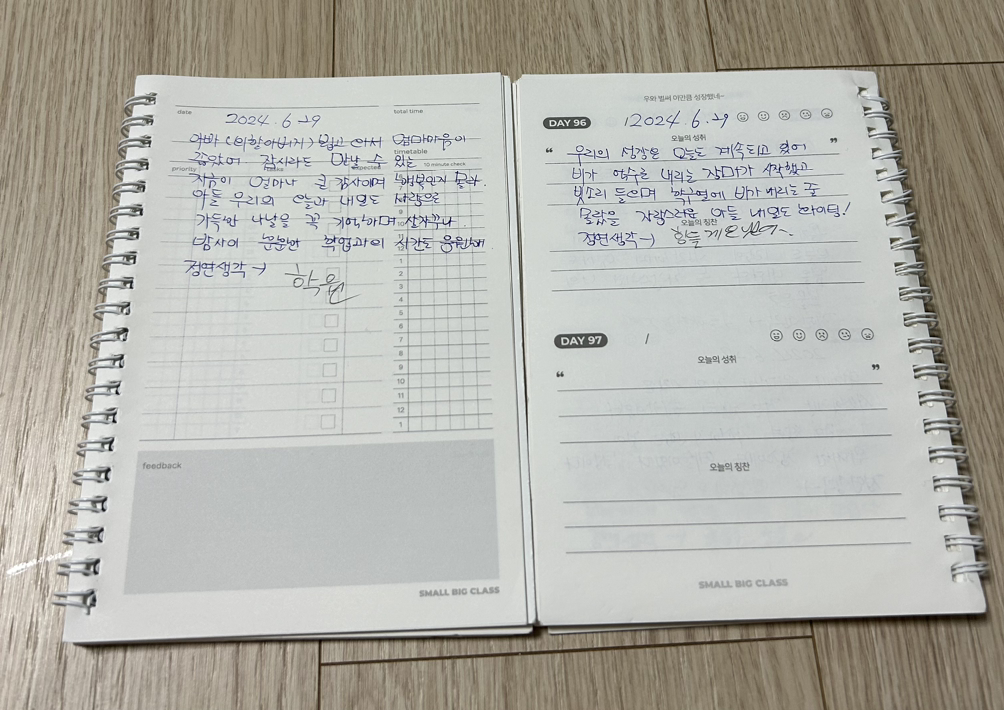 date
total time
2024. 6. 29
아빠 (외할아버지) 뵙고 와서 엄마마음이
잠시라도 만날 수 있는
timetable
10 minute check
priority
지금이 얼마나 큰 감사이며 행복인지 몰라.
아들 우리의 오늘과 내일도 사랑으로
가득한 나날을 꼭 기억하며 살자꾸나
정연생각→
1
2
3
4
5
6
7
8
9
10
11
12
1
feedback
SMALL BIG CLASS
우와 벌써 이만큼 성장했네~
DAY 96
/
2024. 6. 29
오늘의 성취
“ ”
우리의 성장은 오늘도 계속되고 있어
비가 내리는 장마가 시작했고
빗소리 들으며 비가 내리는 줄
몰랐을 자랑스러운 아들 내일도 화이팅!
오늘의 칭찬
정연생각→
DAY 97
/
오늘의 성취
“ ”
오늘의 칭찬
SMALL BIG CLASS